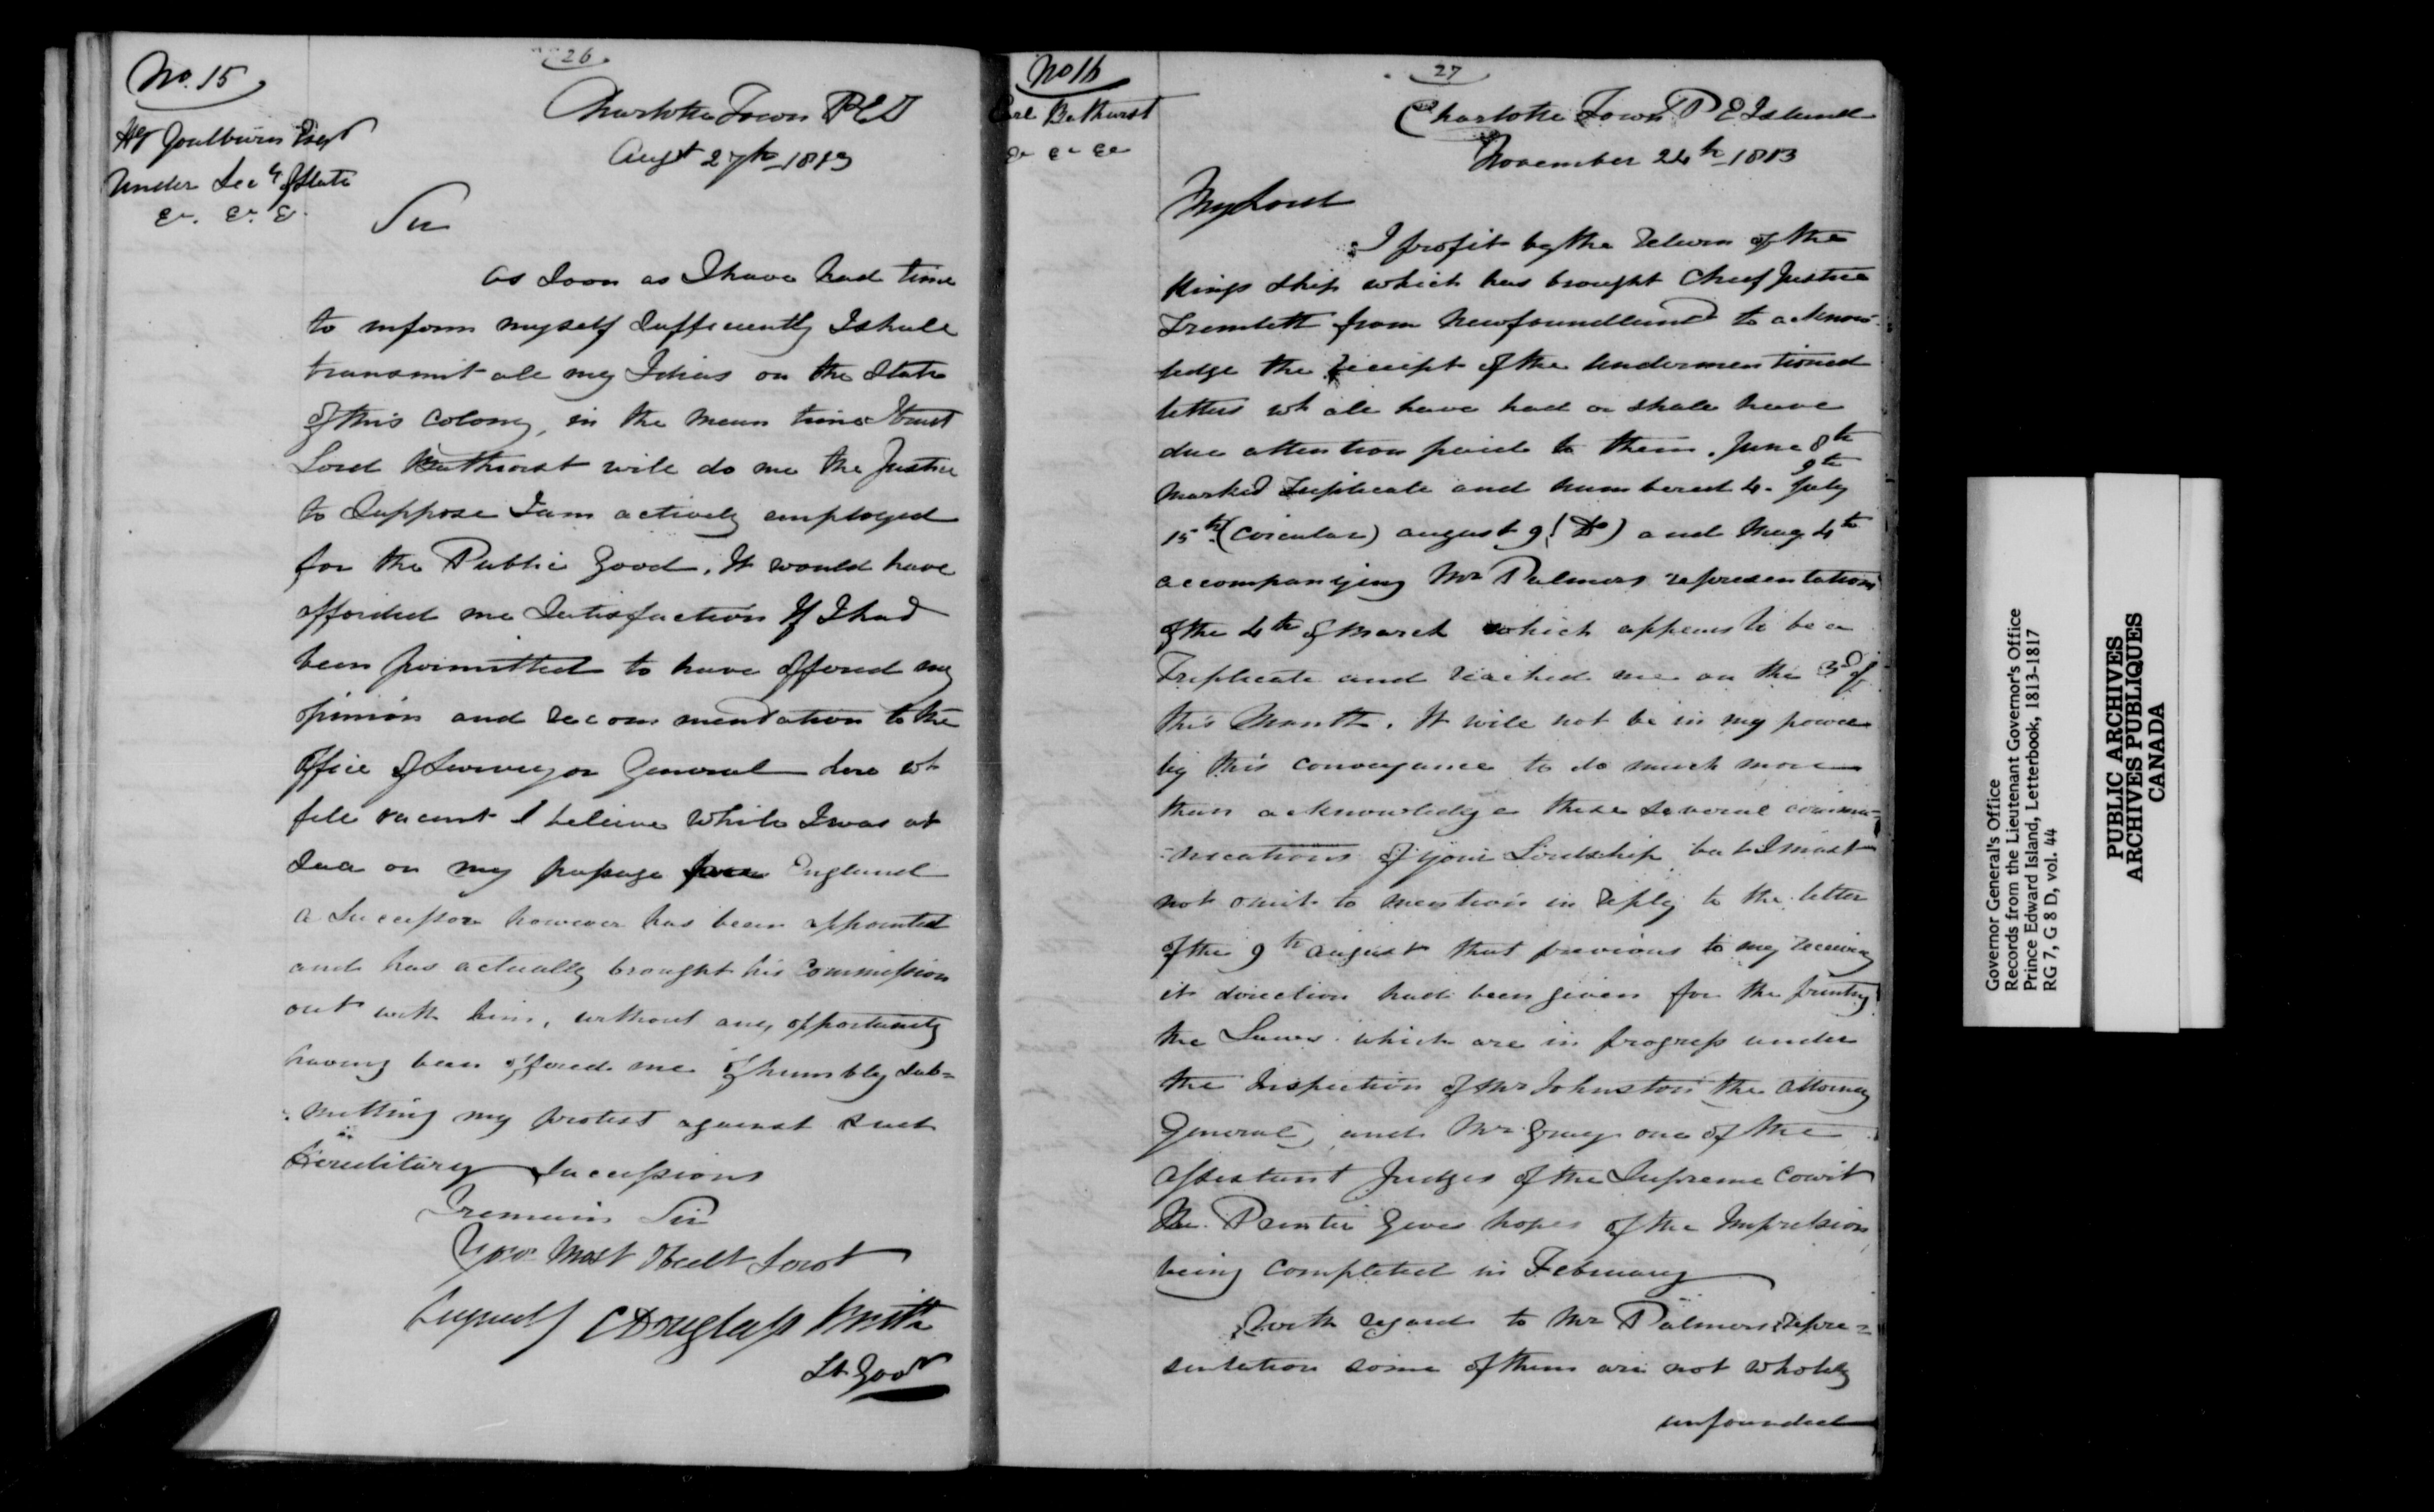 26
No. 15
Hy Goulburn Esqr
Under Secy of State
&c. &c. &c.
Charlotte Town P E I
Augst 27th 1813
Sir
As Soon as I have had time
to inform myself Sufficiently I shall
transmit all my Ideas on the State
of this Colony, in the mean time I trust
Lord Bathurst will do me the Justice
to Suppose I am actively employed
for the Public Good. It would have
afforded me Satisfaction If I had
been permitted to have offered my
opinion and recommendation to the
Office of Surveyor General here wh
fell vacant I believe while I was at
Sea on my passage from England
a Successor however has been appointed
and has actually brought his Commission
out with him, without any opportunity
having been offered me of humbly sub=
mitting my protest against such
Hereditary Successions
I remain Sir
Your Most Obedt Servt
C Douglass Smith
Lt. Govr
27
No 16
Earl Bathurst
&c &c &c
Charlotte Town P E Island
November 24th 1813
My Lord
I profit by the return of the
Kings Ship which has brought Chief Justice
Tremlett from Newfoundland to acknow-
ledge the receipt of the Undermentioned
letters wh all have had or shall have
due attention paid to them. June 8th
9th
marked Triplicate and numbered 4. July
15th (Circular) August 9 (Do) and May 4th
accompanying Mr Palmers representations
of the 4th of March which appears to be a
Triplicate and reached me on the 3d of
this Month. It will not be in my power
by this conveyance to do much more
than acknowledge these several commu=
nications of your Lordship but I must
not omit to mention in reply to the letter
of the 9th August that previous to my receiving
it direction had been given for the printing
the Laws which are in progress under
the Inspection of Mr Johnston the Attorney
General, and Mr Gray one of the
Assistant Judges of the Supreme Court
The Printer gives hopes of the Impression
being completed in February
With regard to Mr Palmers repre=
sentation some of them are not wholly
unfounded
Governor General's Office
Records from the Lieutenant Governor's Office
Prince Edward Island, Letterbook, 1813-1817
RG 7, G 8 D, vol. 44
PUBLIC ARCHIVES
ARCHIVES PUBLIQUES
CANADA